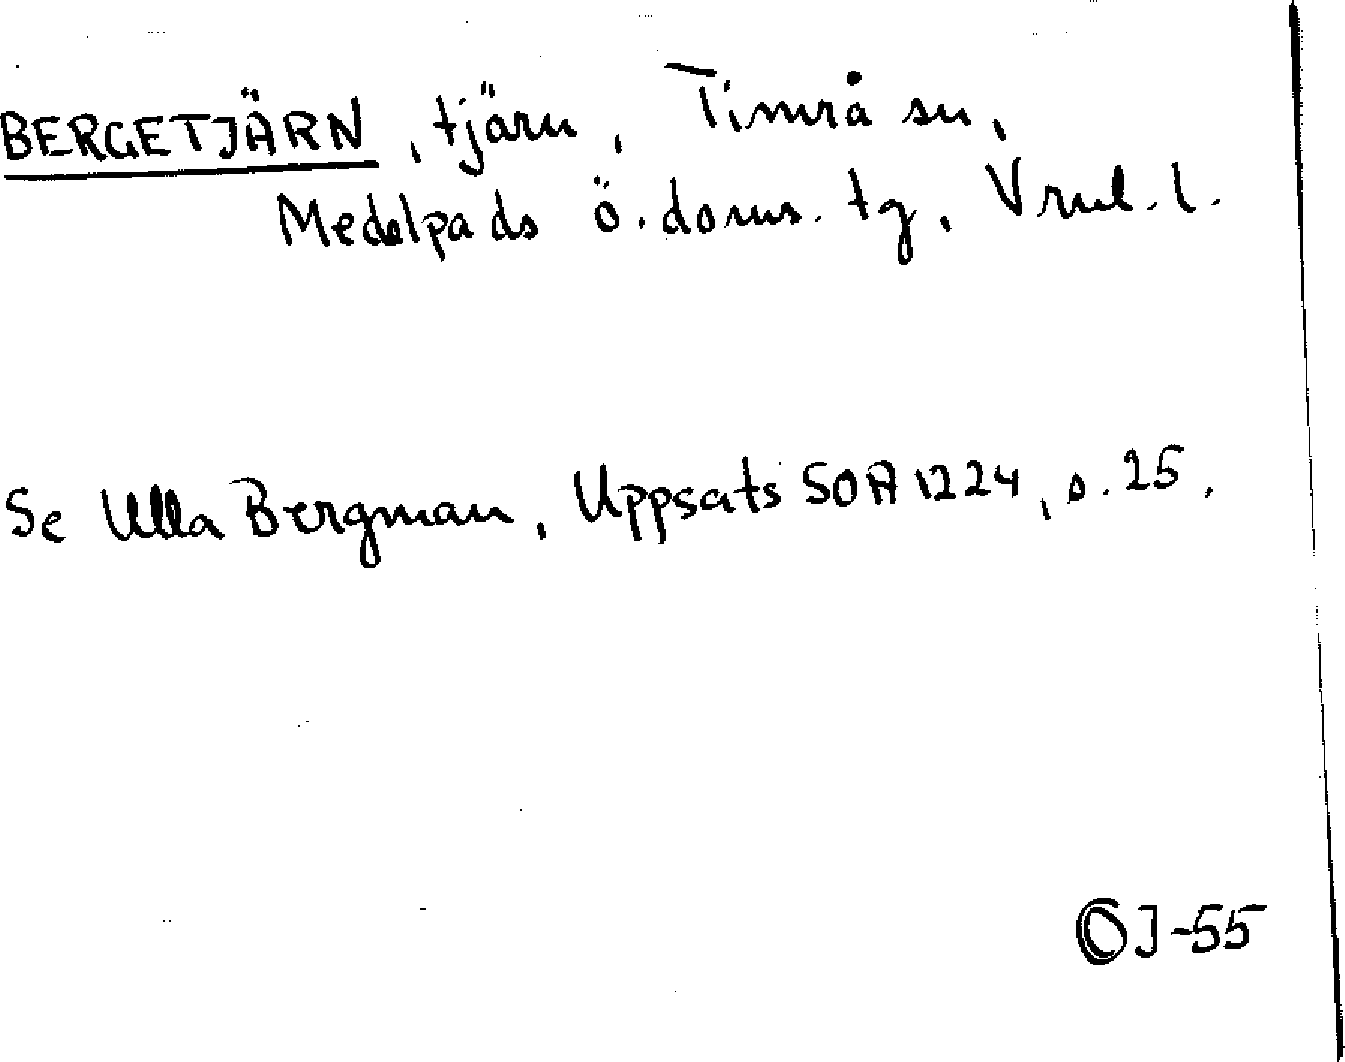 BERGETJÄRN, tjärn, Timrå sn,
Medelpads ö. doms. tg, Vrnl. l.
Se Ulla Bergman, Uppsats SOA 1224, s. 25.
OJ-55